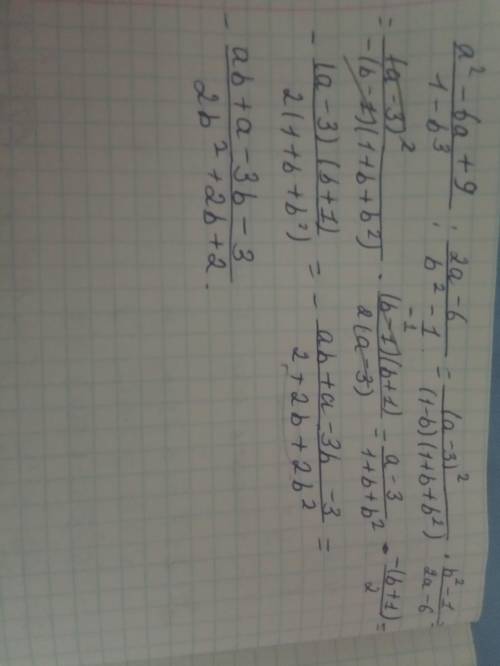 a² - 6a + 9 / 1 - b³ : 2a - 6 / b² - 1 = (a-3)² / (1-b)(1+b+b²) · b² - 1 / 2a - 6 =
= (a-3)² / -(b-1)(1+b+b²) · (b-1)(b+1) / 2(a-3) = a-3 / 1+b+b² · -(b+1) / 2 =
-1
- (a-3)(b+1) / 2(1+b+b²) = - ab+a-3b-3 / 2+2b+2b² =
- ab+a-3b-3 / 2b²+2b+2.